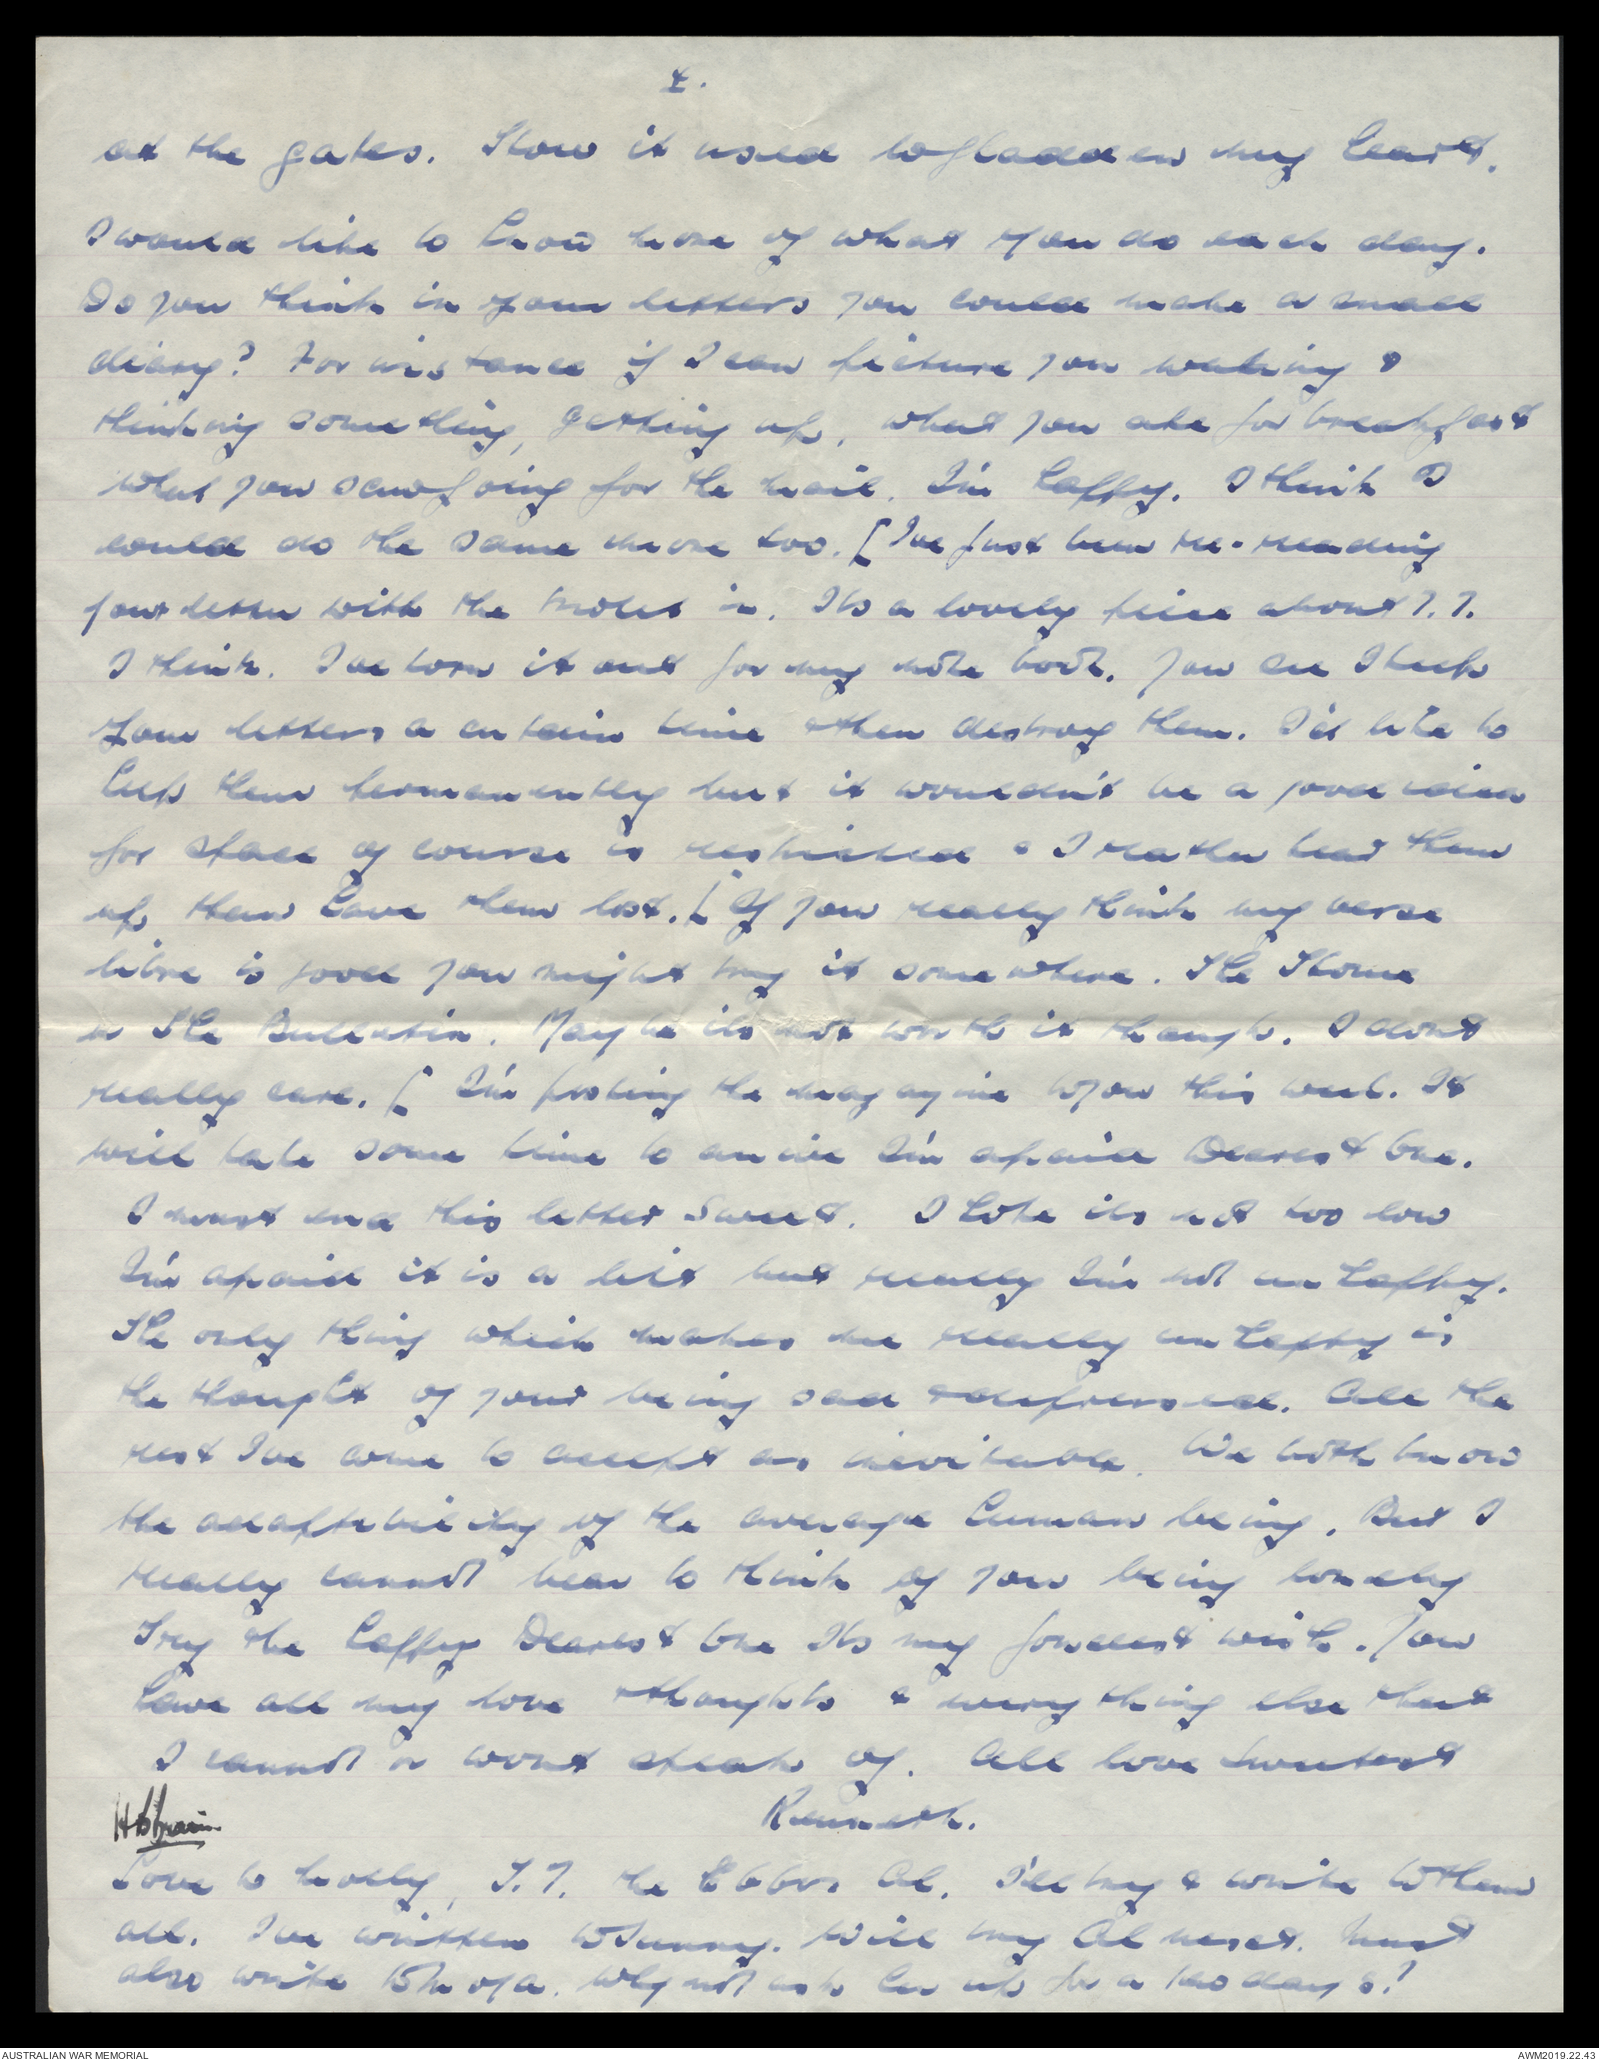 4.
at the gates. How it used to gladden my heart.
I would like to know more of what you do each day.
Do you think in your letters you could make a small
diary? For instance if I can picture you waking &
thinking something, getting up, what you ate for breakfast
what you saw going for the mail, I'm happy. I think I
could do the same more too. [I've just been re-reading
your letter with the violet in. Its a lovely piece about T.T.
I think. I've torn it out for my note book. You see I keep
your letters a certain time & then destroy them. I'd like to
keep them permanently but it wouldn't be a good idea
for space of course is restricted & I rather tear them
up than have them lost. [If you really think my verse
libre is good you might try it somewhere. The Home
or The Bulletin. Maybe its not worth it though. I dont
really care. [ I'm posting the magazine to you this week. It
will take some time to arrive I'm afraid Dearest One.
I must end this letter Sweet. I hope its not too low
I'm afraid it is a bit but really I'm not unhappy.
The only thing which makes me really unhappy is
the thought of your being sad & depressed. All the
rest I've come to accept as inevitable. We both know
the adaptability of the average human being. But I
really cannot bear to think of you being lonely
Try & be happy Dearest One Its my fondest wish. You
have all my love & thoughts & everything else that
I cannot or wont speak of. All love Sweetest
Kenneth.
Love to Molly, T.T. the Al. I'll try & write to them
all. I've written to Sunny. Will try Al next. Must
also write to. Why not ask her up for a few days?